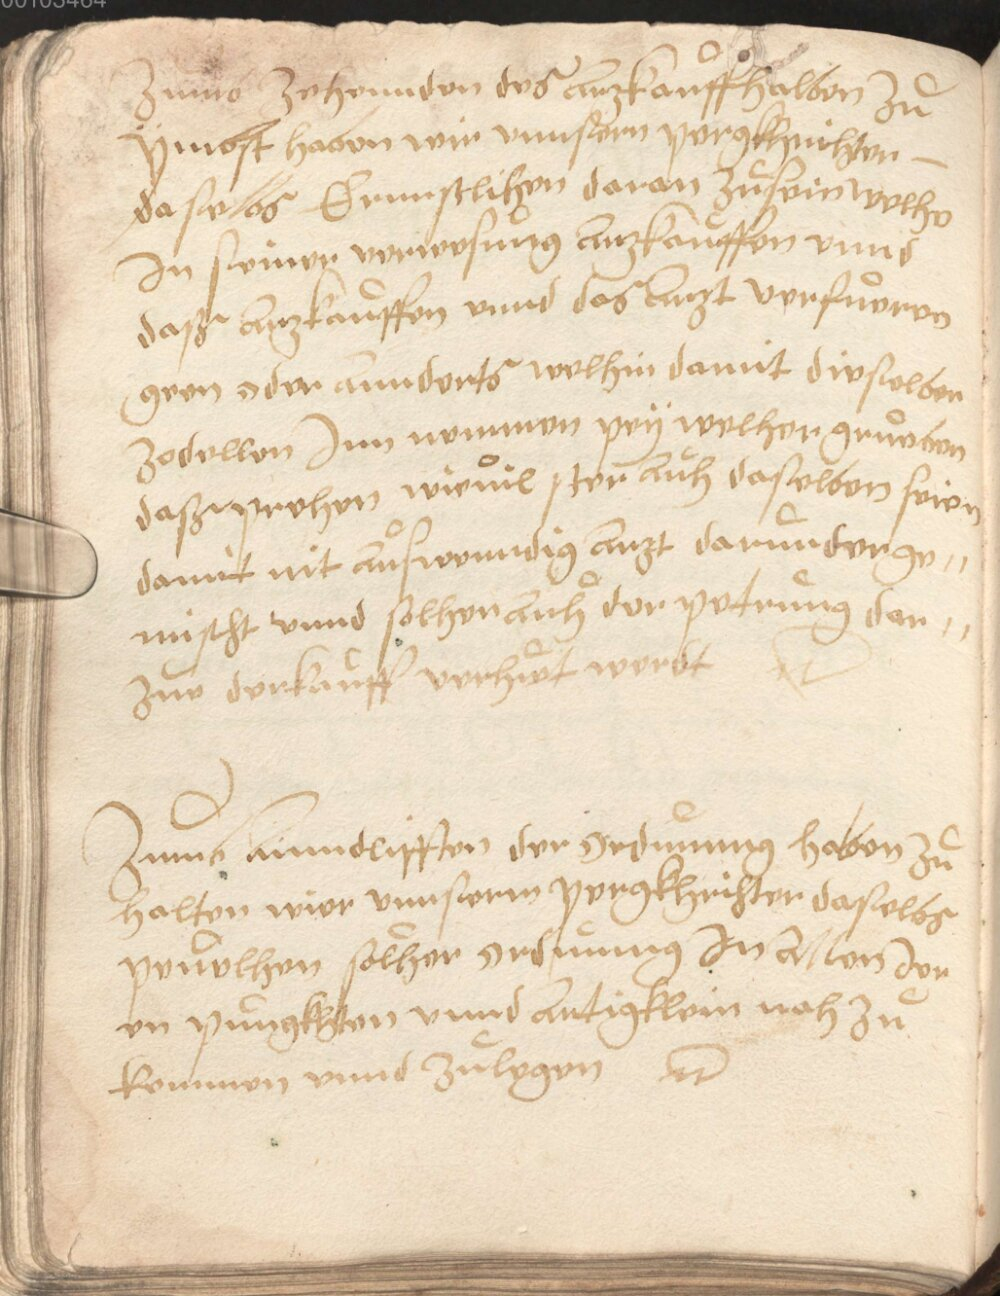 00103464
Zum Zehennden des Artzkauffhalben Zů
Ymbst haben wir unnserm pergkhrichter
daselbs Ernnstlichen daran Zůsein welhe
In seiner verwesůng Artzkauffen unnd
dasz Artzkauffen unnd das Artzt verfueren
gen oder annderts welhin damit dieselben
Zedellen Inn nemmen pey welher gruoben
dasz prechen wieuil ster auch daselben sein
damit nit auswenndig Artzt darunder ge„
mischt unnd solher auch der petrůng dar„
Zue verkauff verhuet werdt

Zum Ainndlifften der Ordnung haben Zů
halten wier unnserm pergkhrichter daselbs
peuelhen solher ordnung In Allen Ier
en pungkhten unnd Artigklein nach Zů
kommen unnd Zůlegen